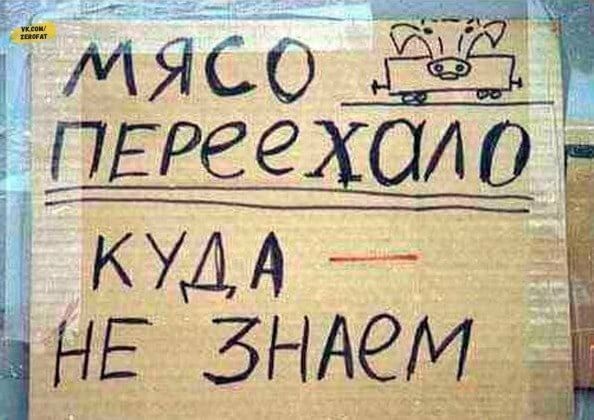 VK.COM/
ZEROFAT
МЯСО
ПЕРеехАЛО
КУДА —
НЕ ЗНАеМ